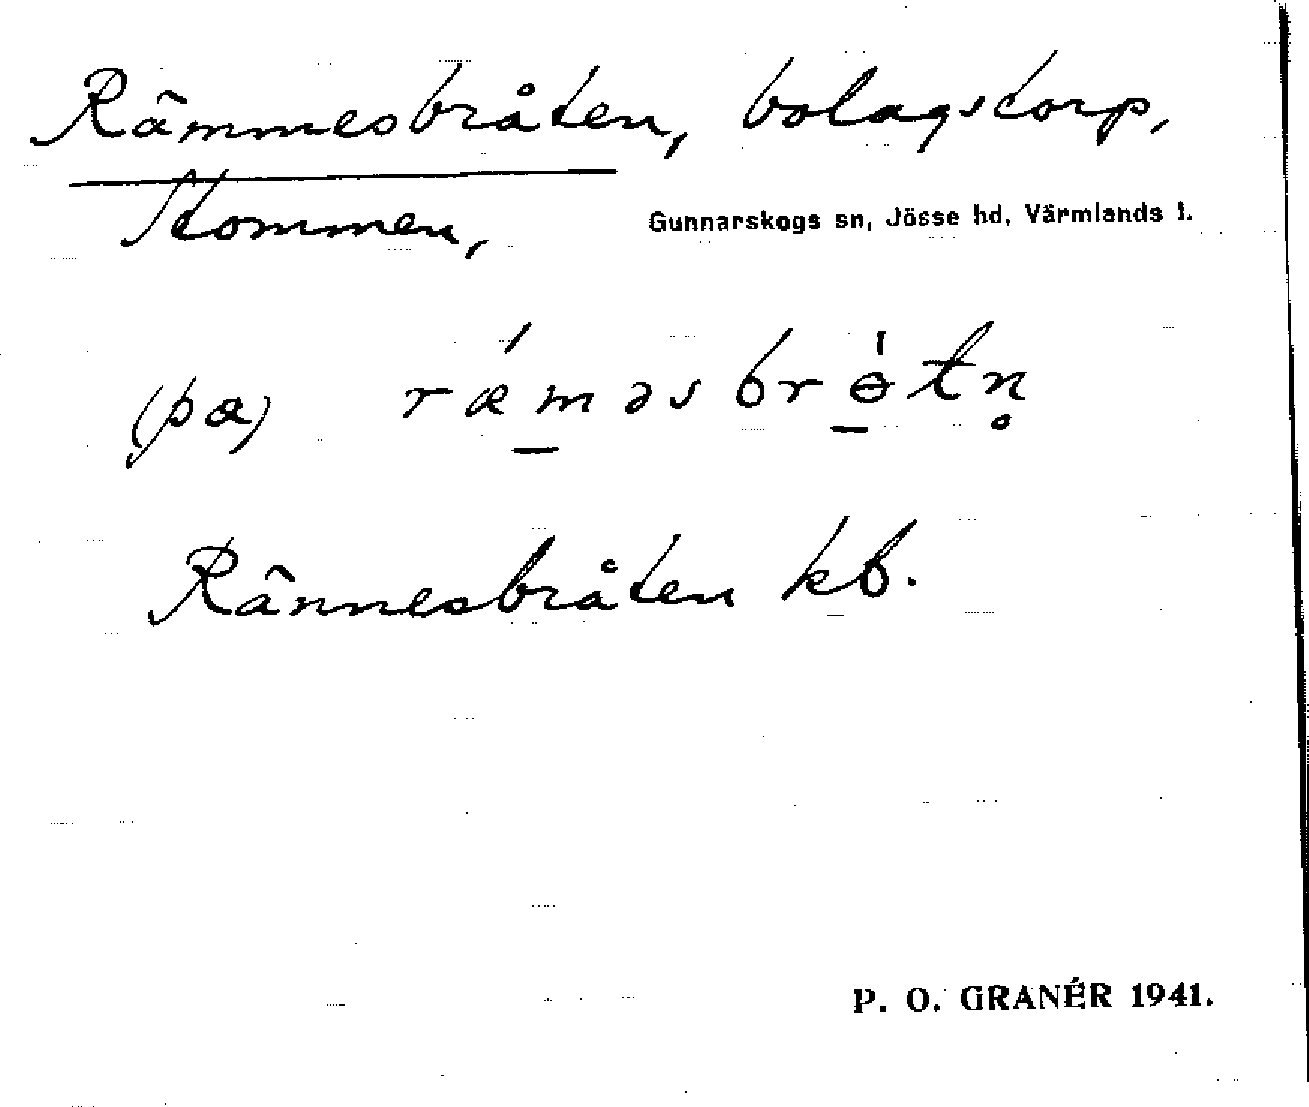 Rämmesbråten, bolagstorp,
Stommen, Gunnarskogs sn, Jösse hd, Värmlands l.
(pa) rǽm̲əsbrɵ̲́tn̥
Rännesbråten kb.
P. O. GRANÉR 1941.